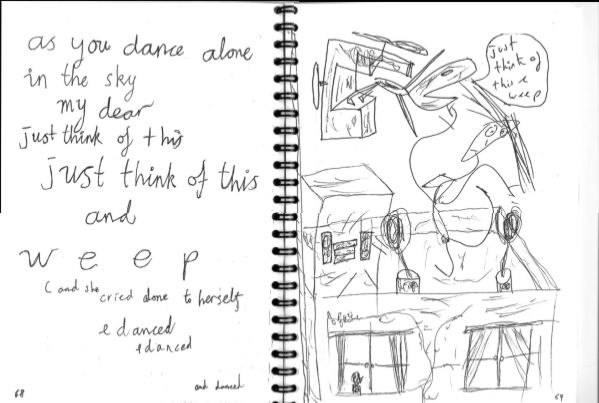 as you dance alone
in the sky
my dear
just think of this
just think of this
and
weep
(and she
cried alone to herself
& danced
& danced
and danced
68
just
think of
this &
weep
69